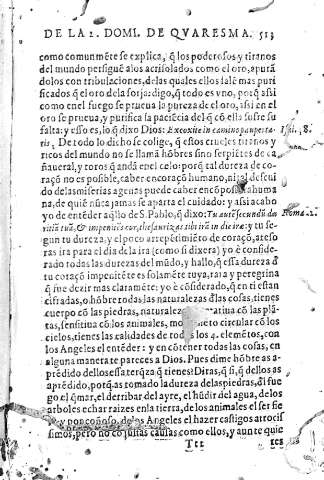 DE LA 2. DOMI. DE QVARESMA. 513
como comunmẽte se explica, q̃ los poderosos y tiranos
del mundo persiguẽ a los acrisolados como el oro, apurã
dolos con tribulaciones, de las quales ellos salẽ mas puri
ficados q̃ el oro de la forja: digo, q̃ todo es vno, porq̃ assi
como en el fuego se prueua la pureza del oro, assi en el
oro se prueua, y purifica la paciẽcia del q̃ cõ ella sufre su
falta: y esso es, lo q̃ dixo Dios: Excoxi te in camino pauperta-
tis, De todo lo dicho se colige, q̃ estos crueles tiranos y
ricos del mundo no se llamã hõbres sino serpiẽtes de ca
ñaueral, y toros q̃ andã en el celo: porq̃ tal dureza de co-
raçõ no es posible, caber en coraçõ humano, ni al descui
do de las miserias agenas puede caber en cõposicõ huma
na, de quiẽ nũca jamas se aparta el cuidado: y assi acabo
yo de entẽder aq̃llo de S. Pablo, q̃ dixo: Tu autẽ secundũ du
ritiã tuã, & impenitẽs cor, thesaurizas tibi irã in die iræ: y tu se-
gun tu dureza, y el poco arrepẽtimiẽto de coraçõ, ateso
ras ira para el dia de la ira (como si dixera) yo è conside-
rado todas las durezas del mũdo, y hallo, q̃ essa dureza d̃
tu coraçõ impenitẽte es solamẽte tuya, rara y peregrina
q̃ fue dezir mas claramẽte: yo è cõsiderado, q̃ en ti estan
cifradas, o hõbre todas las naturalezas d̃ las cosas, tienes
cuerpo cõ las piedras, naturaleza ... cõ las plã-
tas, sensitiua cõ los animales, mouimiẽto circular cõ los
cielos, tienes las calidades de todos los 4. elemẽtos, con
los Angeles el entẽder: y en cõtener todas las cosas, en
alguna manera te pareces a Dios. Pues dime hõbre as a-
prẽdido dello essa terq̃za q̃ tienes? Diras, q̃ si, q̃ dellos as
aprẽdido, porq̃ as tomado la dureza de las piedras, d̃l fue
go el q̃mar, el derribar del ayre, el hũdir del agua, de los
arboles echar raizes en la tierra, de los animales el ser fie
... y ponçoñoso, de los Angeles el hazer castigos atrocis
simos, pero no cõ justas causas como ellos, y aunte quie
Ttt
res
Isai. 48.
Roma. 2.